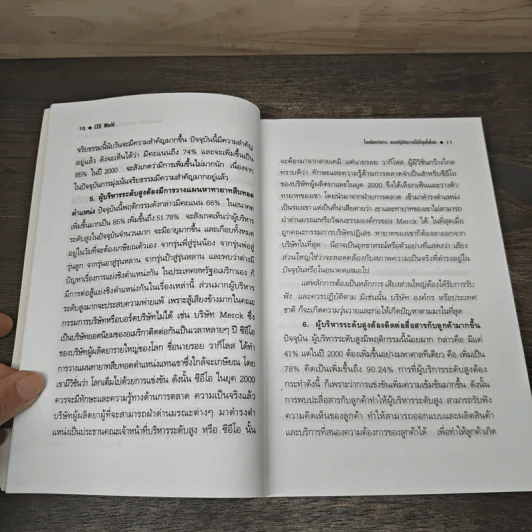 10 ● CEO World
จริยธรรมนี้นับวันจะมีความสำคัญมากขึ้น ปัจจุบันนี้มีความสำคัญ
อยู่แล้ว ดังจะเห็นได้ว่า มีคะแนนถึง 74% และจะเพิ่มขึ้นเป็น
85% ในปี 2000 จะสังเกตว่ามีการเพิ่มขึ้นไม่มากนัก เนื่องจาก
ในปัจจุบันการมุ่งเน้นจริยธรรมมีความสำคัญมากอยู่แล้ว
5. ผู้บริหารระดับสูงต้องมีการวางแผนหาทายาทสืบทอด
ตำแหน่ง ปัจจุบันนี้พฤติกรรมดังกล่าวมีคะแนน 66% ในอนาคต
เพิ่มขึ้นมากเป็น 85% เพิ่มขึ้นถึง 51.78% จะสังเกตเห็นว่าผู้บริหาร
ระดับสูงในปัจจุบันจำนวนมาก จะมีอายุมากขึ้น และเกือบทั้งหมด
อยู่ในวัยที่จะต้องเกษียณตัวเอง จากรุ่นพี่สู่รุ่นน้อง จากรุ่นพ่อสู่
รุ่นลูก จากรุ่นอาสู่รุ่นหลาน จากรุ่นปู่สู่รุ่นหลาน และพบว่าต่างมี
ปัญหาเรื่องการแย่งชิงตำแหน่งกัน ในประเทศสหรัฐอเมริกาเอง ก็
มีการต่อสู้แย่งชิงตำแหน่งกันในเรื่องเหล่านี้ ส่วนมากผู้บริหาร
ระดับสูงมากจะประสบความพ่ายแพ้ เพราะสู้เสียงข้างมากในคณะ
กรรมการบริษัทหรือบอร์ดบริษัทไม่ได้ เช่น บริษัท Merck ซึ่ง
เป็นบริษัทยอดนิยมของอเมริกาติดต่อกันเป็นเวลาหลายๆ ปี ซีอีโอ
ของบริษัทผู้ผลิตยารายใหญ่ของโลก ชื่อนายรอย วากีโลส ได้ทำ
การวางแผนทายาทสืบทอดตำแหน่งแทนเขาซึ่งใกล้จะเกษียณ โดย
เขามีวิชั่นว่า โลกเต็มไปด้วยการแข่งขัน ดังนั้น ซีอีโอ ในยุค 2000
ควรจะมีทักษะและความรู้ทางด้านการตลาด ความเป็นจริงแล้ว
บริษัทผู้ผลิตยาผู้ที่จะสามารถฝ่าด่านมรณะต่างๆ มาดำรงตำ
แหน่งเป็นประธานคณะเจ้าหน้าที่บริหารระดับสูง หรือ ซีอีโอ นั้น
● 11
จะต้องมาจากสายเคมี แต่นายรอย วากีโลส ผู้มีวิชั่นกว้างไกล
ทราบดีว่า ทักษะและความรู้ด้านการตลาดจำเป็นสำหรับซีอีโอ
ของบริษัทผู้ผลิตยาและในยุค 2000 จึงได้เลือกเฟ้นและวางตัว
ทายาทของเขา โดยนำมาจากฝ่ายการตลาด เข้ามาดำรงตำแหน่ง
ผ่าด่านมรณะหรือวัฒนธรรมองค์กรของ Merck ได้ ในที่สุดเมื่อ
ถูกคณะกรรมการบริษัทปฏิเสธ ทายาทของเขาก็ต้องลาออกจาก
บริษัทในที่สุด นี่อาจเป็นอุทาหรณ์หรือตัวอย่างที่แสดงว่า เสียง
ส่วนใหญ่ใช่ว่าจะสอดคล้องกับสภาพความเป็นจริงที่ดำรงอยู่ใน
ปัจจุบันหรือในอนาคตเสมอไป
แต่หลักการต้องเป็นหลักการ เสียงส่วนใหญ่ต้องได้รับการรับ
ฟัง และควรปฏิบัติตาม มิเช่นนั้น บริษัท องค์กร หรือประเทศ
ชาติ ก็จะเกิดความวุ่นวายและก่อให้เกิดปัญหาตามมาในที่สุด
6. ผู้บริหารระดับสูงต้องติดต่อสื่อสารกับลูกค้ามากขึ้น
ปัจจุบัน ผู้บริหารระดับสูงมีพฤติกรรมนี้น้อยมาก กล่าวคือ มีแค่
41% แต่ในปี 2000 ต้องเพิ่มขึ้นอย่างมหาศาลทีเดียว คือ เพิ่มเป็น
78% คิดเป็นเพิ่มขึ้นถึง 90.24% การที่ผู้บริหารระดับสูงต้อง
กระทำดังนี้ ก็เพราะว่าการแข่งขันเพิ่มความเข้มข้นมากขึ้น ดังนั้น
การพบปะสื่อสารกับลูกค้าทำให้ผู้บริหารระดับสูง สามารถรับฟัง
ความคิดเห็นของลูกค้า ทำให้สามารถออกแบบและผลิตสินค้า
และบริการที่สนองความต้องการของลูกค้าได้ เพื่อทำให้ลูกค้าเกิด